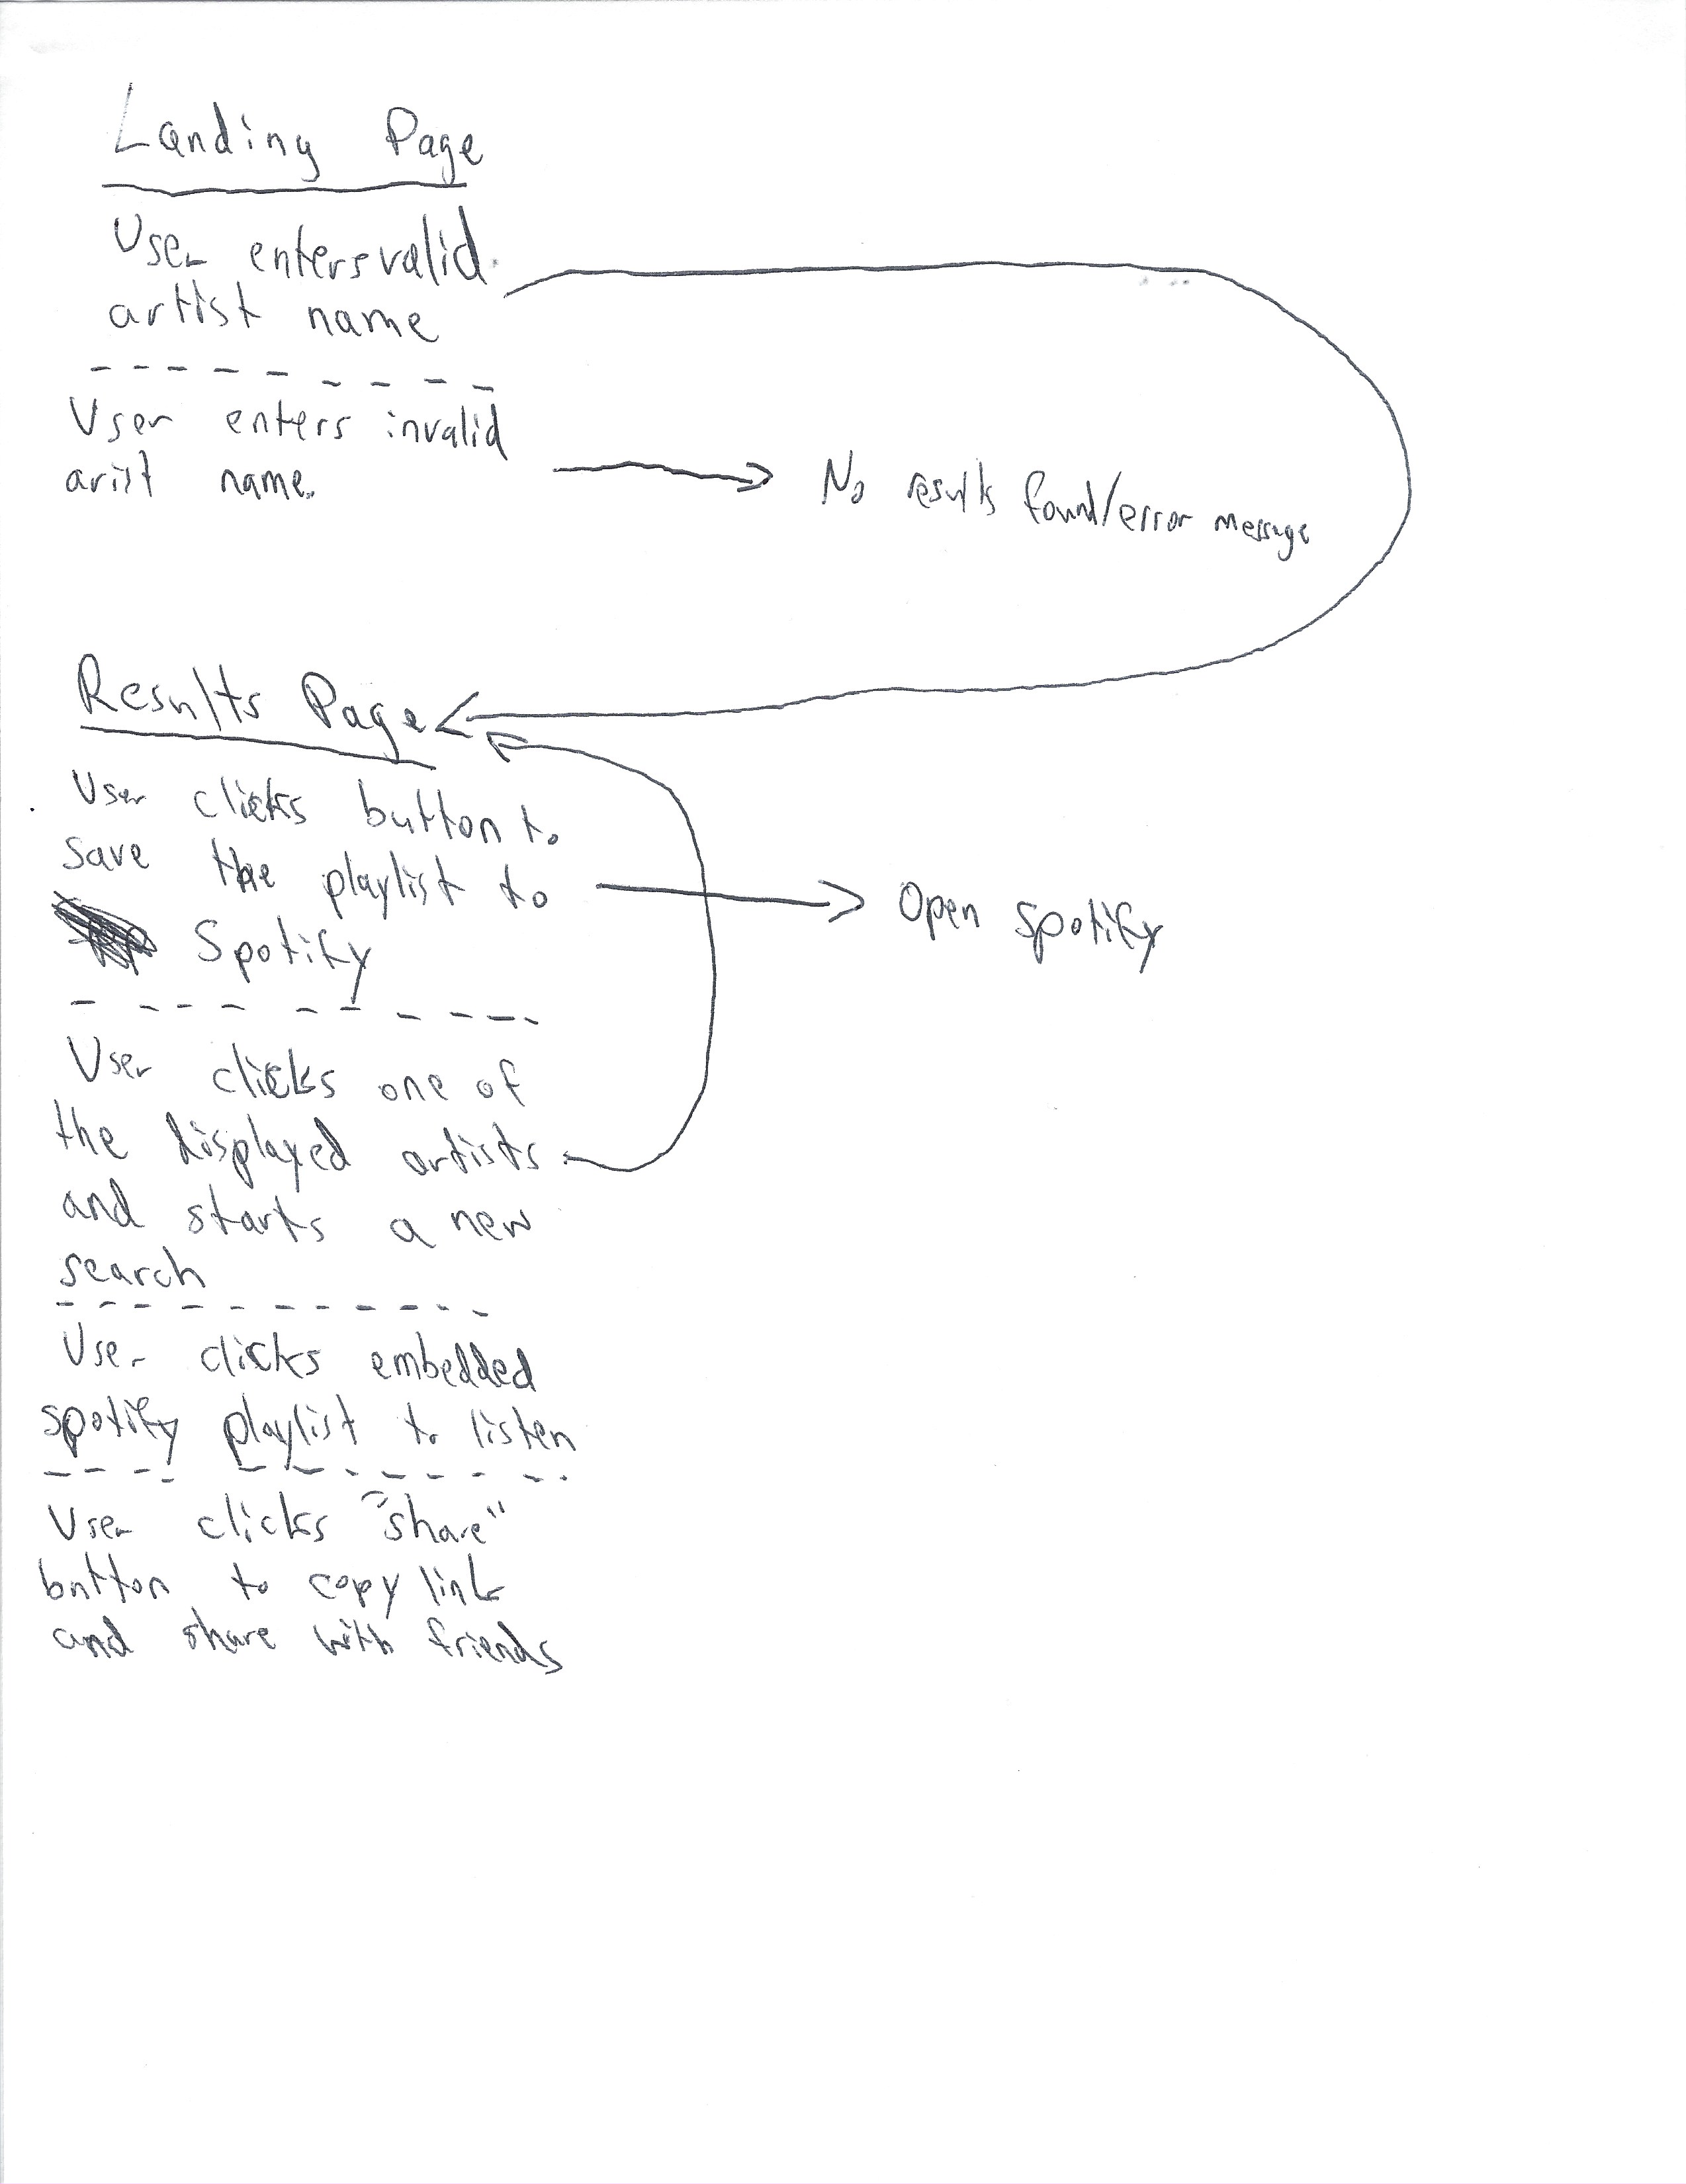 Landing Page
User enters valid
artist name
User enters invalid
arist name.
No results found/error message
Results Page
User clicks button to
save the playlist to
Spotify
Open Spotify
User clicks one of
the displayed artists
and starts a new
search
User clicks embedded
spotify playlist to listen
User clicks "share"
button to copy link
and share with friends